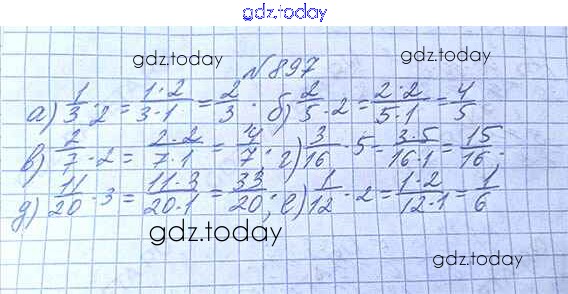 gdz.today
gdz.today gdz.today
№897
а) 1/3 · 2 = 1·2/3·1 = 2/3. б) 2/5 · 2 = 2·2/5·1 = 4/5
в) 2/7 · 2 = 2·2/7·1 = 4/7; г) 3/16 · 5 = 3·5/16·1 = 15/16.
д) 11/20 · 3 = 11·3/20·1 = 33/20; е) 1/12 · 2 = 1·2/12·1 = 1/6
gdz.today
gdz.today